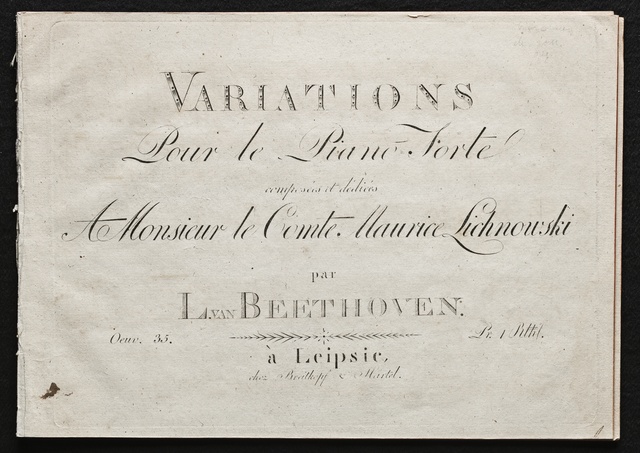 VARIATIONS
Pour le Piano-Forte
composées et dédiées
A Monsieur le Comte Maurice Lichnowski
par
L. VAN BEETHOVEN.
Oeuv. 35. Pr. 1 Rthl.
à Leipsic,
chez Breitkopf & Härtel.